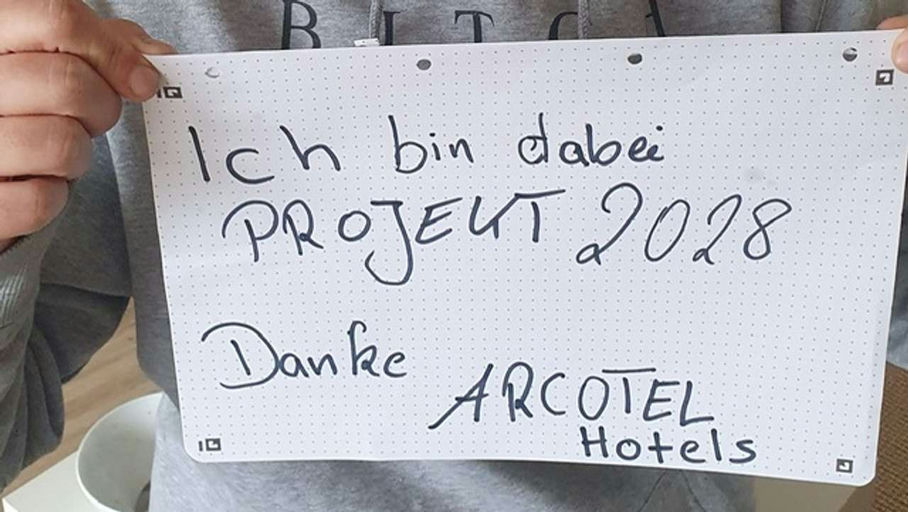 Ich bin dabei
PROJEKT 2028
Danke
ARCOTEL
Hotels